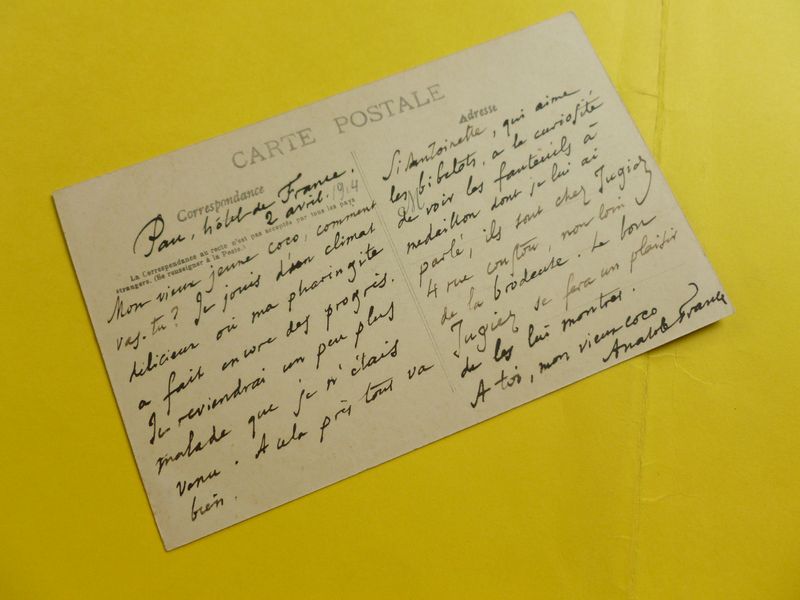 CARTE POSTALE
Correspondance
Adresse
La Correspondance au recto n'est pas acceptée par tous les pays
étrangers. (Se renseigner à la Poste.)
Pau, hôtel de France.
2 avril. 1914
Mon vieux jeune coco, comment
vas-tu? Je jouis d'un climat
délicieux où ma pharingite
a fait encore des progrès.
Je reviendrai un peu plus
malade que je n'étais
venu. A cela près tout va
bien.
Si Antoinette, qui aime
les bibelots, a la curiosité
de voir les fauteuils à
médaillon dont je lui ai
parlé, ils sont chez Jugiez
4 rue coustou, non loin
de la brodeuse. Le bon
Jugiez se fera un plaisir
de les lui montrer.
A toi, mon vieux coco
Anatole France